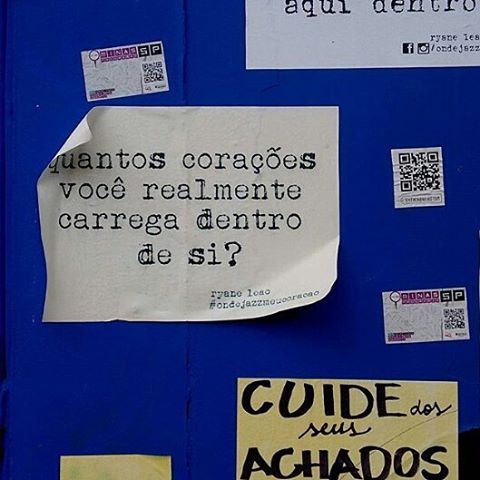 aqui dentro
ryane leao
/ondejazz
MINAS
SP
quantos corações
você realmente
carrega dentro
de si?
ryane leao
#ondejazzmeucoracao
MINAS
SP
CUIDE dos
seus
ACHADOS